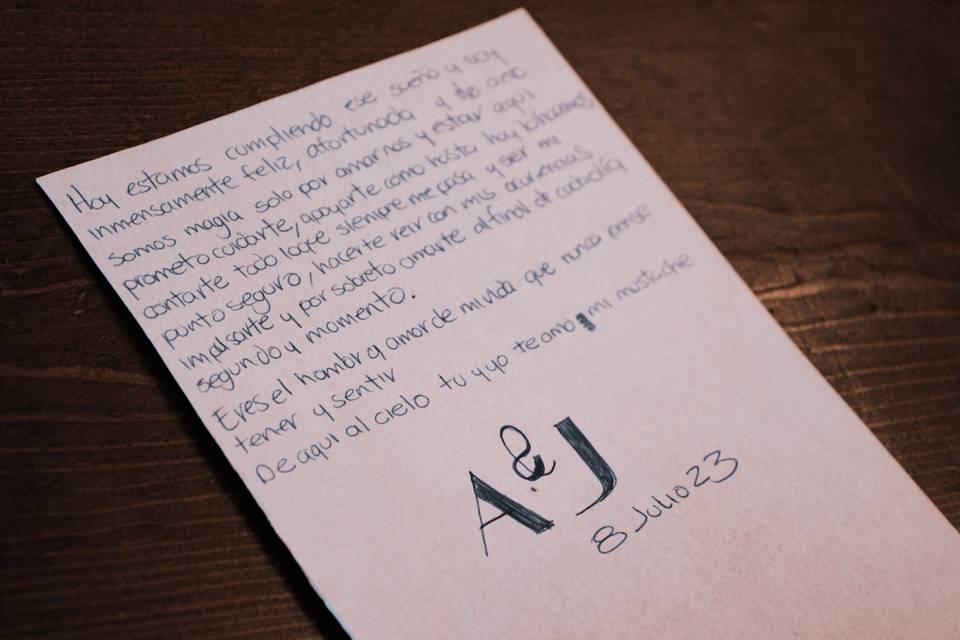 Hoy estamos cumpliendo ese sueño y soy
inmensamente feliz, afortunada y te amo
somos magia solo por amarnos y estar aqui
prometo cuidarte, apoyarte como hasta hoy lo hacemos
contarte todo loqe siempre me pasa y ser mi
punto seguro, hacerte reir con mis ocurrencias
impulsarte y por sobreto amarte al final de cada día
segundo y momento.
Eres el hombre y amor de mi vida que nunca pense
tener y sentir
De aqui al cielo tu y yo te amo mi mustache
A & J
8 Julio 23